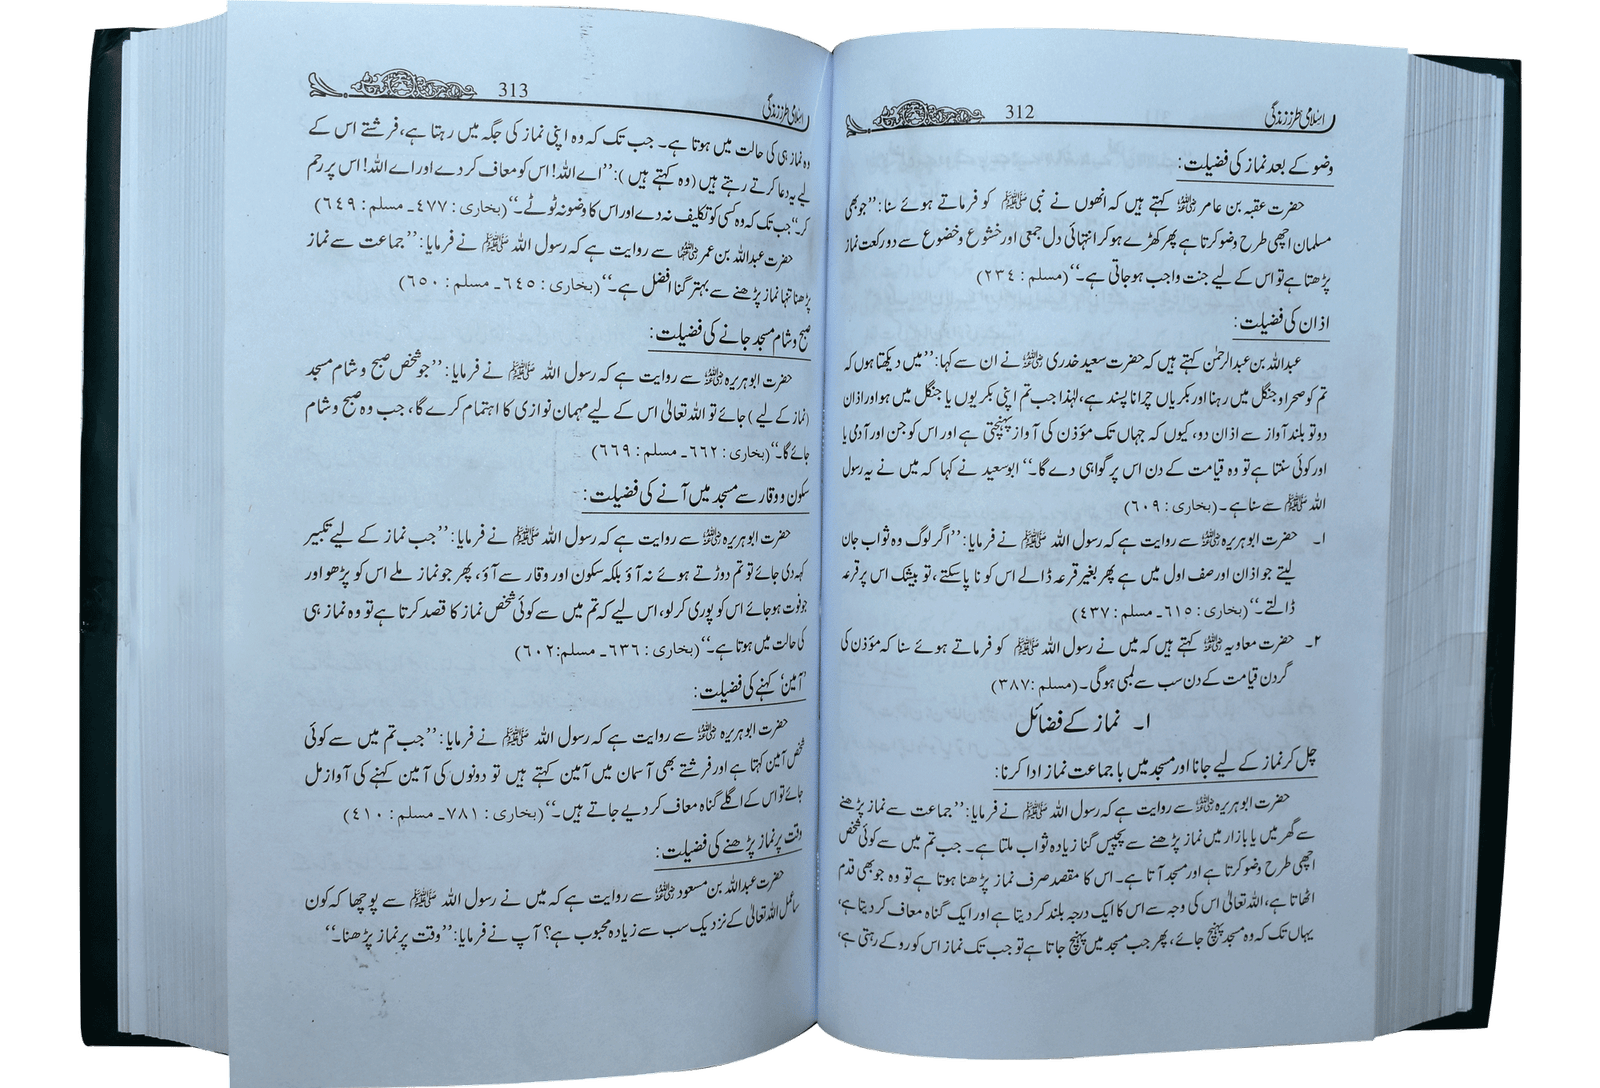 اسلامی طرز زندگی 312
وضو کے بعد نماز کی فضیلت:
حضرت عقبہ بن عامر رضی اللہ عنہ کہتے ہیں کہ انھوں نے نبی ﷺ کو فرماتے ہوئے سنا: ’’جو بھی
مسلمان اچھی طرح وضو کرتا ہے پھر کھڑے ہو کر انتہائی دل جمعی اور خشوع و خضوع سے دو رکعت نماز
پڑھتا ہے تو اس کے لیے جنت واجب ہو جاتی ہے۔‘‘ (مسلم : ۲۳۴)
اذان کی فضیلت:
عبداللہ بن عبدالرحمٰن کہتے ہیں کہ حضرت سعید خدری رضی اللہ عنہ نے ان سے کہا: ’’میں دیکھتا ہوں کہ
تم کو صحرا و جنگل میں رہنا اور بکریاں چرانا پسند ہے، لہٰذا جب تم اپنی بکریوں یا جنگل میں ہو اور اذان
دو تو بلند آواز سے اذان دو، کیوں کہ جہاں تک مؤذن کی آواز پہنچتی ہے اور اس کو جن اور آدمی یا
اور کوئی سنتا ہے تو وہ قیامت کے دن اس پر گواہی دے گا۔‘‘ ابوسعید نے کہا کہ میں نے یہ رسول
اللہ ﷺ سے سنا ہے۔ (بخاری : ۶۰۹)
۱۔ حضرت ابوہریرہ رضی اللہ عنہ سے روایت ہے کہ رسول اللہ ﷺ نے فرمایا: ’’اگر لوگ وہ ثواب جان
لیتے جو اذان اور صف اول میں ہے پھر بغیر قرعہ ڈالے اس کو نا پا سکتے، تو بیشک اس پر قرعہ
ڈالتے۔‘‘ (بخاری : ۶۱۵۔ مسلم : ۴۳۷)
۲۔ حضرت معاویہ رضی اللہ عنہ کہتے ہیں کہ میں نے رسول اللہ ﷺ کو فرماتے ہوئے سنا کہ مؤذن کی
گردن قیامت کے دن سب سے لمبی ہو گی۔ (مسلم : ۳۸۷)
۱۔ نماز کے فضائل
چل کر نماز کے لیے جانا اور مسجد میں با جماعت نماز ادا کرنا:
حضرت ابوہریرہ رضی اللہ عنہ سے روایت ہے کہ رسول اللہ ﷺ نے فرمایا: ’’جماعت سے نماز پڑھنے
سے گھر میں یا بازار میں نماز پڑھنے سے پچیس گنا زیادہ ثواب ملتا ہے۔ جب تم میں سے کوئی شخص
اچھی طرح وضو کرتا ہے اور مسجد آتا ہے۔ اس کا مقصد صرف نماز پڑھنا ہوتا ہے تو وہ جو بھی قدم
اٹھاتا ہے، اللہ تعالیٰ اس کی وجہ سے اس کا ایک درجہ بلند کر دیتا ہے اور ایک گناہ معاف کر دیتا ہے،
یہاں تک کہ وہ مسجد پہنچ جائے، پھر جب مسجد میں پہنچ جاتا ہے تو جب تک نماز اس کو روکے رہتی ہے،
اسلامی طرز زندگی 313
وہ نماز ہی کی حالت میں ہوتا ہے۔ جب تک کہ وہ اپنی نماز کی جگہ میں رہتا ہے، فرشتے اس کے
لیے یہ دعا کرتے رہتے ہیں (وہ کہتے ہیں): ’’اے اللہ! اس کو معاف کر دے اور اے اللہ! اس پر رحم
کر۔‘‘ جب تک کہ وہ کسی کو تکلیف نہ دے اور اس کا وضو نہ ٹوٹے۔‘‘ (بخاری : ۴۷۷۔ مسلم : ۶۴۹)
حضرت عبداللہ بن عمر رضی اللہ عنہما سے روایت ہے کہ رسول اللہ ﷺ نے فرمایا: ’’جماعت سے نماز
پڑھنا تنہا نماز پڑھنے سے بہتر گنا افضل ہے۔‘‘ (بخاری : ۶۴۵۔ مسلم : ۶۵۰)
صبح و شام مسجد جانے کی فضیلت:
حضرت ابوہریرہ رضی اللہ عنہ سے روایت ہے کہ رسول اللہ ﷺ نے فرمایا: ’’جو شخص صبح و شام مسجد
(نماز کے لیے) جائے تو اللہ تعالیٰ اس کے لیے مہمان نوازی کا اہتمام کرے گا، جب وہ صبح و شام
جائے گا۔‘‘ (بخاری : ۶۶۲۔ مسلم : ۶۶۹)
سکون و وقار سے مسجد میں آنے کی فضیلت:
حضرت ابوہریرہ رضی اللہ عنہ سے روایت ہے کہ رسول اللہ ﷺ نے فرمایا: ’’جب نماز کے لیے تکبیر
کہہ دی جائے تو تم دوڑتے ہوئے نہ آؤ بلکہ سکون اور وقار سے آؤ، پھر جو نماز ملے اس کو پڑھو اور
جو فوت ہو جائے اس کو پوری کر لو، اس لیے کہ تم میں سے کوئی شخص نماز کا قصد کرتا ہے تو وہ نماز ہی
کی حالت میں ہوتا ہے۔‘‘ (بخاری : ۶۳۶۔ مسلم: ۶۰۲)
’آمین‘ کہنے کی فضیلت:
حضرت ابوہریرہ رضی اللہ عنہ سے روایت ہے کہ رسول اللہ ﷺ نے فرمایا: ’’جب تم میں سے کوئی
شخص آمین کہتا ہے اور فرشتے بھی آسمان میں آمین کہتے ہیں تو دونوں کی آمین کہنے کی آواز مل
جائے تو اس کے اگلے گناہ معاف کر دیے جاتے ہیں۔‘‘ (بخاری : ۷۸۱۔ مسلم : ۴۱۰)
وقت پر نماز پڑھنے کی فضیلت:
حضرت عبداللہ بن مسعود رضی اللہ عنہ سے روایت ہے کہ میں نے رسول اللہ ﷺ سے پوچھا کہ کون
سا عمل اللہ تعالیٰ کے نزدیک سب سے زیادہ محبوب ہے؟ آپ نے فرمایا: ’’وقت پر نماز پڑھنا۔‘‘